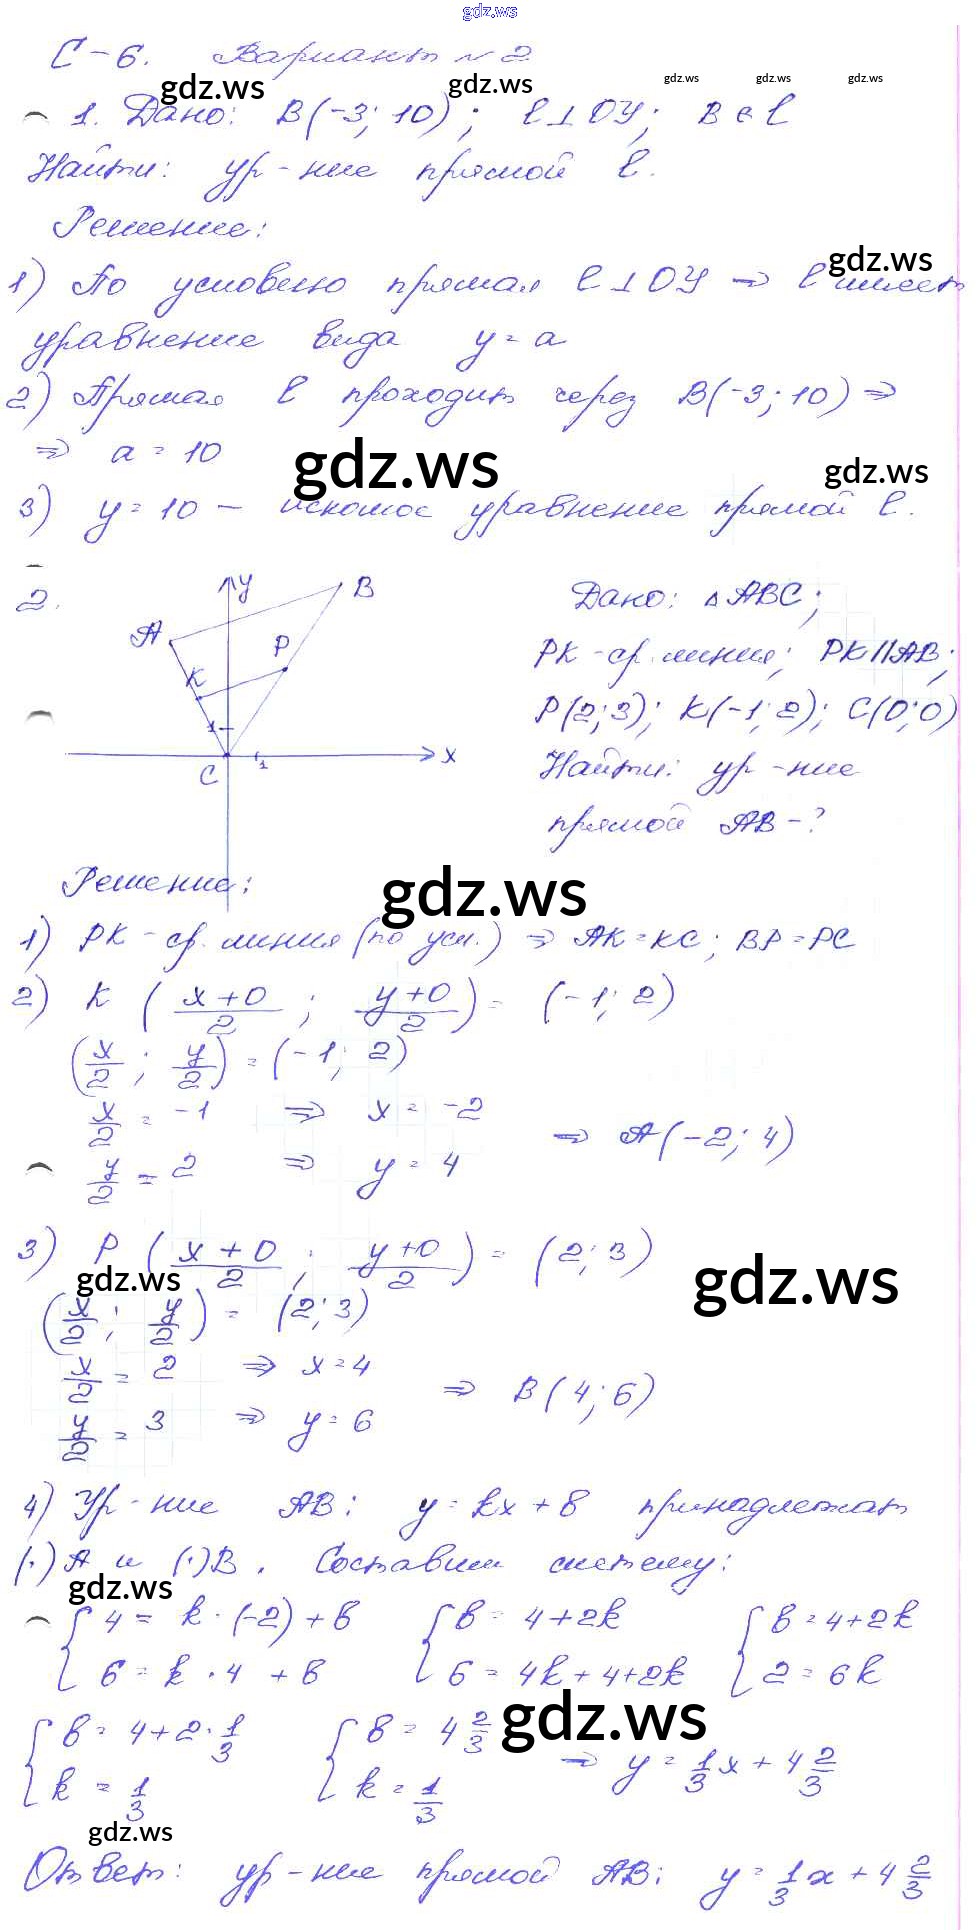 gdz.ws
С-6. Вариант №2
gdz.ws gdz.ws gdz.ws gdz.ws gdz.ws
1. Дано: B(-3; 10); l⊥OY; B ∈ l
Найти: ур-ние прямой l.
Решение:
gdz.ws
1) По условию прямая l⊥OY ⇒ l имеет
уравнение вида y = a
2) Прямая l проходит через B(-3; 10) ⇒
⇒ a = 10
gdz.ws gdz.ws
3) y = 10 – искомое уравнение прямой l.
2.
y B
A
P
K
1
x
1
C
Дано: △ABC;
PK - ср. линия; PK||AB;
P(2; 3); K(-1; 2); C(0; 0)
Найти: ур-ние
прямой AB - ?
Решение:
gdz.ws
1) PK - ср. линия (по усл.) ⇒ AK = KC; BP = PC
2) K ((x+0)/2; (y+0)/2) = (-1; 2)
(x/2; y/2) = (-1; 2)
x/2 = -1 ⇒ x = -2
⇒ A(-2; 4)
y/2 = 2 ⇒ y = 4
3) P ((x+0)/2; (y+0)/2) = (2; 3)
gdz.ws gdz.ws
(x/2; y/2) = (2; 3)
x/2 = 2 ⇒ x = 4
⇒ B(4; 6)
y/2 = 3 ⇒ y = 6
4) Ур-ние AB: y = kx + b принадлежат
(·)A и (·)B. Составим систему:
gdz.ws
{4 = k·(-2) + b {b = 4+2k {b = 4+2k
{6 = k·4 + b {6 = 4k+4+2k {2 = 6k
gdz.ws
{b = 4+2·1/3 {b = 4 2/3
⇒ y = 1/3 x + 4 2/3
{k = 1/3 {k = 1/3
gdz.ws
Ответ: ур-ние прямой AB: y = 1/3 x + 4 2/3